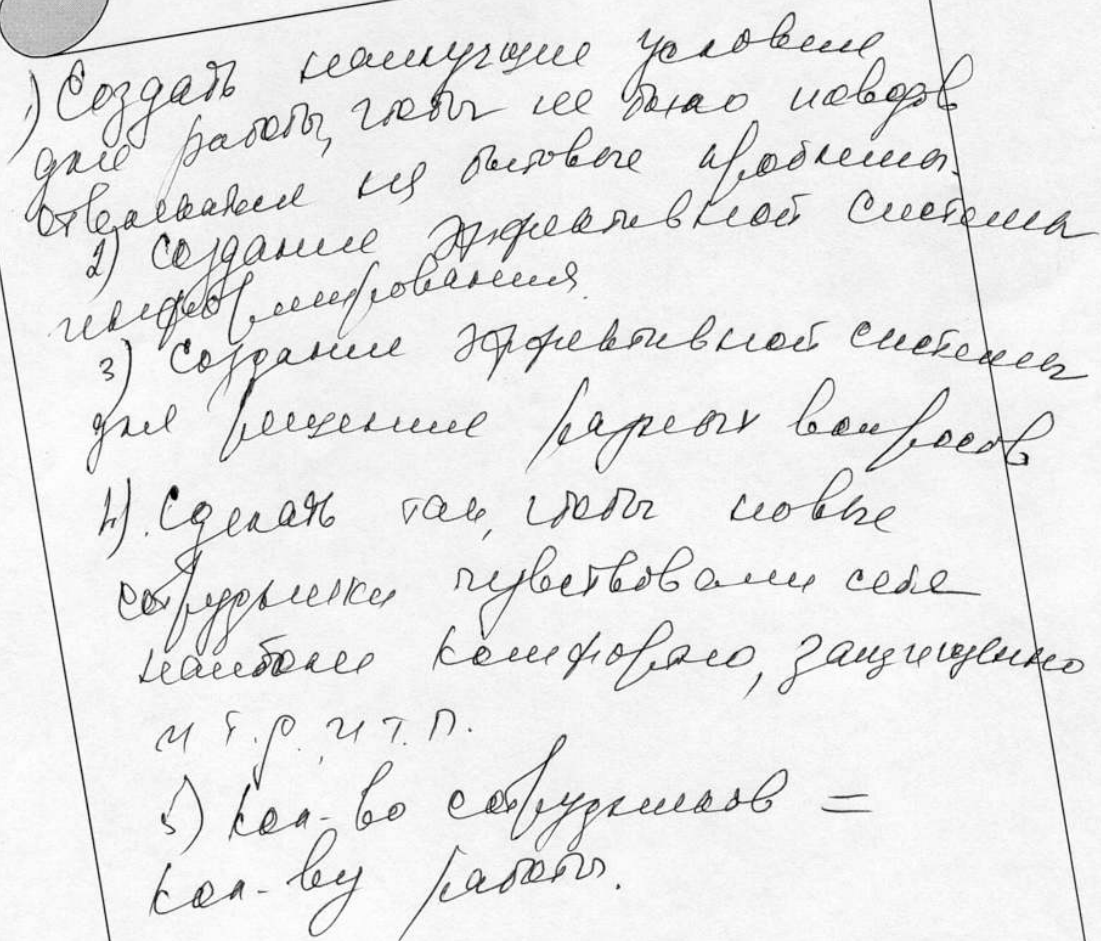 1) Создать наилучшие условия
для работы, чтобы не было поводов
отвлекаться на бытовые проблемы.
2) Создание эффективной системы
информирования.
3) Создание эффективной системы
для решения разных вопросов
4). Сделать так, чтобы новые
сотрудники чувствовали себя
наиболее комфортно, защищенно
и т.д. и т.п.
5) Кол-во сотрудников =
кол-ву работы.